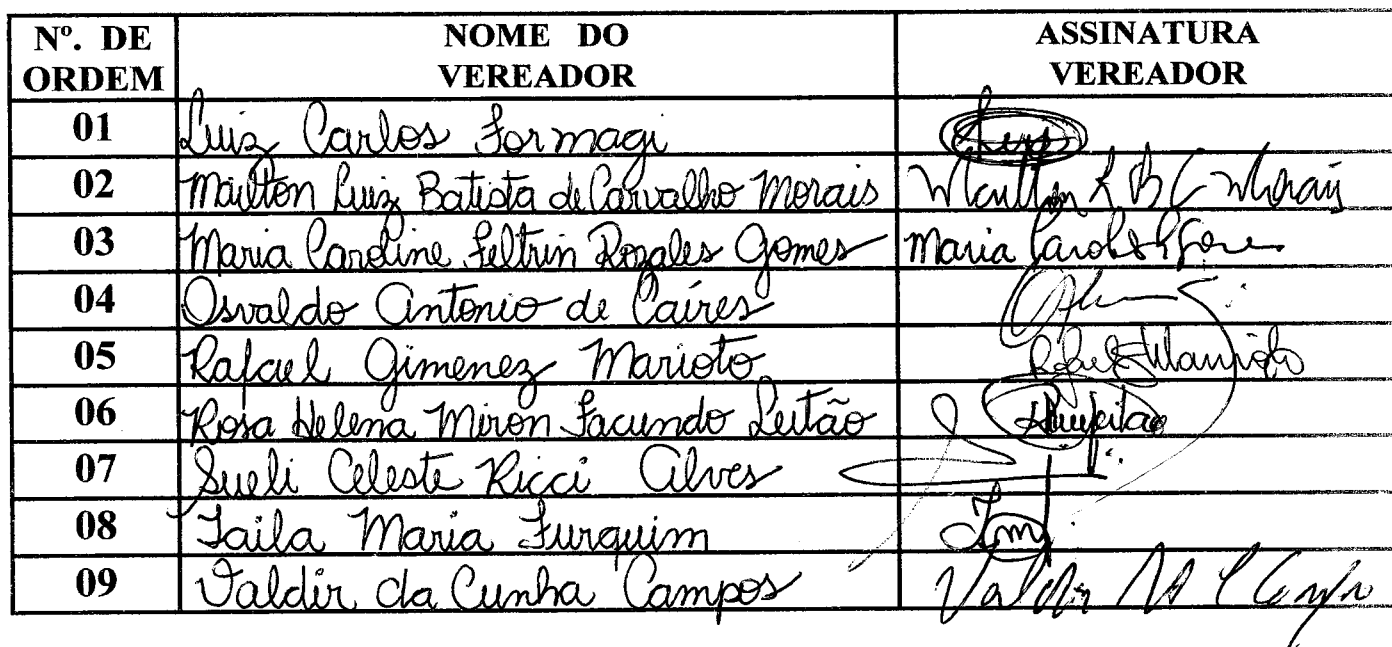 Nº. DE ORDEM NOME DO VEREADOR ASSINATURA VEREADOR
01 Luiz Carlos Formagi Luiz
02 Mailton Luiz Batista de Carvalho Morais Mailton L B C Morais
03 Maria Caroline Feltrin Rozales Gomes Maria
04 Osvaldo Antonio de Caires
05 Rafael Gimenez Marioto Rafael Marioto
06 Rosa Helena Miron Facundo Leitão
07 Sueli Celeste Ricci Alves
08 Taila Maria Furquim
09 Valdir da Cunha Campos Valdir